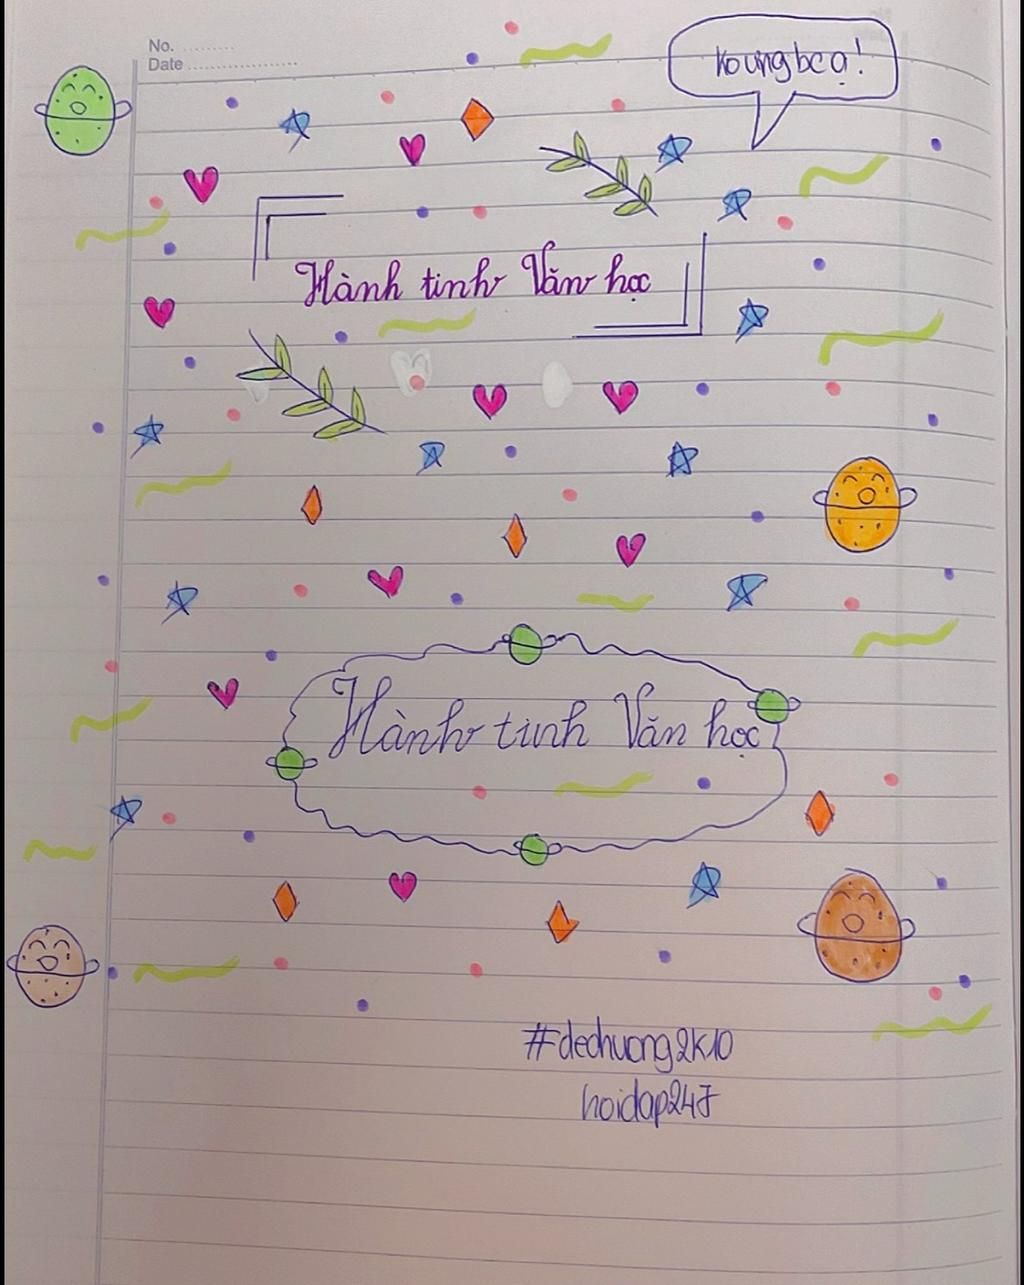 No. .........
Date ....................
Hành tinh Văn học
Hành tinh Văn học
#dechuong2K10
hoidap247